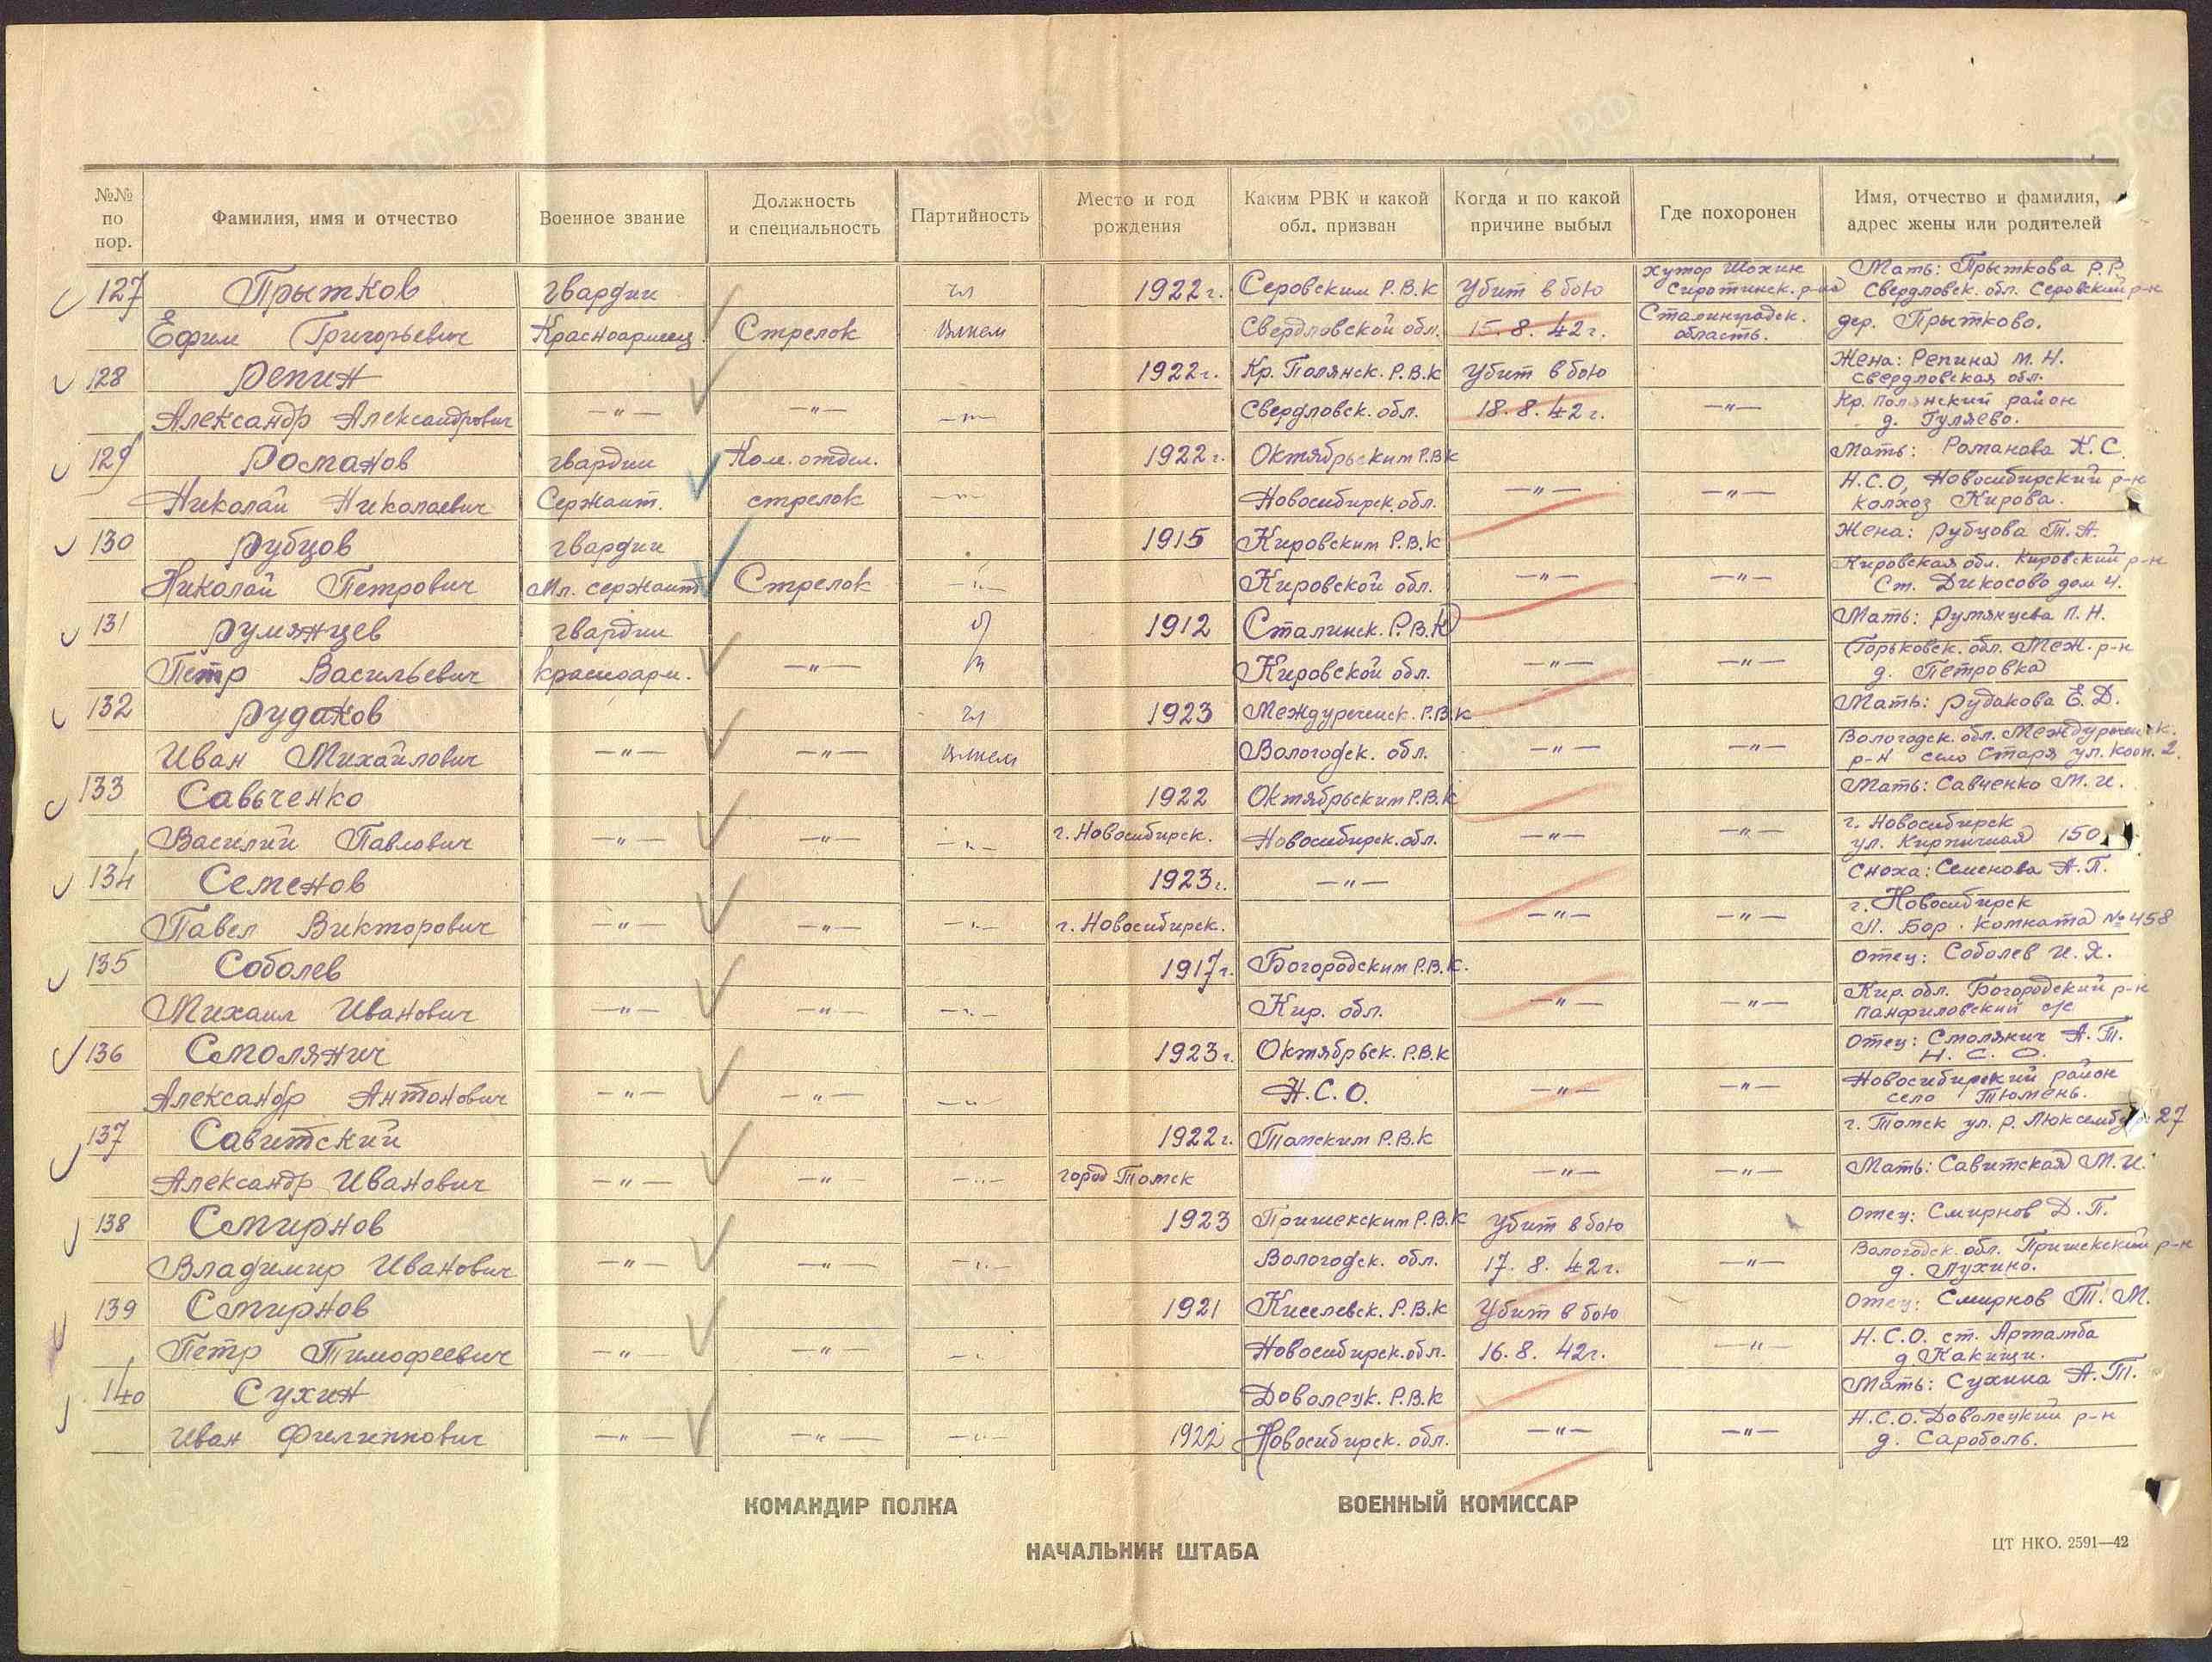 №№ по пор.
Фамилия, имя и отчество
Военное звание
Должность и специальность
Партийность
Место и год рождения
Каким РВК и какой обл. призван
Когда и по какой причине выбыл
Где похоронен
Имя, отчество и фамилия, адрес жены или родителей
127 Прытков гвардии чл 1922 г. Серовским Р.В.К Убит в бою хутор Шохин Сиротинск. р-на Мать: Прыткова Р.Р. Свердловск. обл. Серовский р-н
Ефим Григорьевич Красноармеец Стрелок Влкем Свердловской обл. 15.8.42 г. Сталинградск. область. дер. Прытково.
128 Репин 1922 г. Кр. Полянск. Р.В.К Убит в бою Жена: Репина М.Н. Свердловская обл.
Александр Александрович —"— —"— —"— Свердловск. обл. 18.8.42 г. —"— Кр. Полянский район д. Гуляево.
129 Романов гвардии Ком. отдел. 1922 г. Октябрьским Р.В.К Мать: Романова К.С.
Николай Николаевич Сержант. стрелок —"— Новосибирск. обл. —"— —"— Н.С.О, Новосибирский р-н колхоз Кирова.
130 Рубцов гвардии 1915 Кировским Р.В.К Жена: Рубцова Т.А.
Николай Петрович Мл. сержант Стрелок —"— Кировской обл. —"— —"— Кировская обл. Кировский р-н Ст. Дикосово дом 4.
131 Румянцев гвардии б/ 1912 Сталинск. Р.В.К Мать: Румянцева П.Н.
Петр Васильевич красноарм. —"— п Кировской обл. —"— —"— Горьковск. обл. Меж. р-н д. Петровка
132 Рудаков чл 1923 Междуреченск. Р.В.К Мать: Рудакова Е.Д.
Иван Михайлович —"— —"— Влкем Вологодск. обл. —"— —"— Вологодск. обл. Междуреченск. р-н село Старя ул. Кооп. 2.
133 Савьченко 1922 Октябрьским Р.В.К Мать: Савченко М.И.
Василий Павлович —"— —"— —"— г. Новосибирск. Новосибирск. обл. —"— —"— г. Новосибирск ул. Кирпичная 150
134 Семенов 1923 г. —"— Сноха: Семенова А.П.
Павел Викторович —"— —"— —"— г. Новосибирск. —"— —"— г. Новосибирск Л. Бор. комната № 458
135 Соболев 1917 г. Богородским Р.В.К. Отец: Соболев И.Я.
Михаил Иванович —"— —"— —"— Кир. обл. —"— —"— Кир. обл. Богородский р-н Панфиловский с/с
136 Смолянич 1923 г. Октябрьск. Р.В.К Отец: Смолянич А.Т. Н.С.О.
Александр Антонович —"— —"— —"— Н.С.О. —"— —"— Новосибирский район село Тюмень.
137 Савитский 1922 г. Томским Р.В.К г. Томск ул. Р. Люксембург 27
Александр Иванович —"— —"— —"— город Томск —"— —"— Мать: Савитская М.И.
138 Смирнов 1923 Пришекским Р.В.К Убит в бою Отец: Смирнов Д.П.
Владимир Иванович —"— —"— —"— Вологодск. обл. 17.8.42 г. —"— Вологодск. обл. Пришекский р-н д. Лухино.
139 Смирнов 1921 Киселевск. Р.В.К Убит в бою Отец: Смирнов Т.М.
Петр Тимофеевич —"— —"— —"— Новосибирск. обл. 16.8.42 г. —"— Н.С.О. ст. Артамба д. Какищи.
140 Сухин Доволецк. Р.В.К Мать: Сухина А.Т.
Иван Филиппович —"— —"— —"— 1922 Новосибирск. обл. —"— —"— Н.С.О. Доволецкий р-н д. Сароболь.
КОМАНДИР ПОЛКА
ВОЕННЫЙ КОМИССАР
НАЧАЛЬНИК ШТАБА
ЦТ НКО. 2591—42